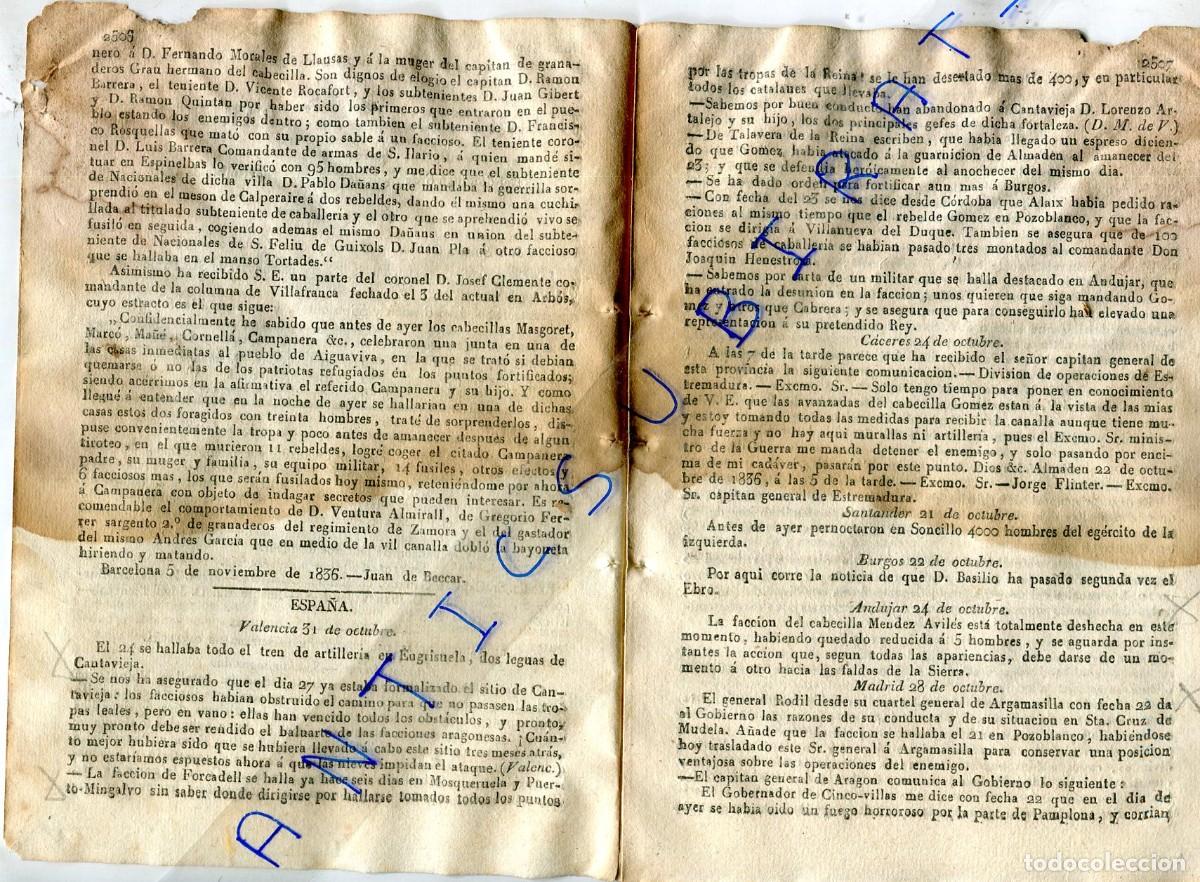 2506
nero á D. Fernando Morales de Llausas y á la muger del capitan de grana-
deros Grau hermano del cabecilla. Son dignos de elogio el capitan D. Ramon
Barrera, el teniente D. Vicente Rocafort, y los subtenientes D. Juan Gibert
y D. Ramon Quintan por haber sido los primeros que entraron en el pue-
blo estando los enemigos dentro; como tambien el subteniente D. Francis-
co Rosquellas que mató con su propio sable á un faccioso. El teniente coro-
nel D. Luis Barrera Comandante de armas de S. Ilario, á quien mandé si-
tuar en Espinelbas lo verificó con 95 hombres, y me dice que el subteniente
de Nacionales de dicha villa D. Pablo Dañans que mandaba la guerrilla sor-
prendió en el meson de Calperaire á dos rebeldes, dando él mismo una cuchi-
llada al titulado subteniente de caballería y el otro que se aprehendió vivo se
fusiló en seguida, cogiendo ademas el mismo Dañans en union del subte-
niente de Nacionales de S. Feliu de Guixols D. Juan Pla á otro faccioso
que se hallaba en el manso Tortades.“
Asimismo ha recibido S. E. un parte del coronel D. Josef Clemente co-
mandante de la columna de Villafranca fechado el 3 del actual en Arbós,
cuyo estracto es el que sigue:
„Confidencialmente he sabido que antes de ayer los cabecillas Masgoret,
Marcó, Mañé, Cornellá, Campanera &c., celebraron una junta en una de
las casas inmediatas al pueblo de Aiguaviva, en la que se trató si debian
quemarse ó no las de los patriotas refugiados en los puntos fortificados;
siendo acérrimos en la afirmativa el referido Campanera y su hijo. Y como
llegué á entender que en la noche de ayer se hallarian en una de dichas
casas estos dos foragidos con treinta hombres, traté de sorprenderlos, dis-
puse convenientemente la tropa y poco antes de amanecer despues de algun
tiroteo, en el que murieron 11 rebeldes, logré coger el citado Campanera
padre, su muger y familia, su equipo militar, 14 fusiles, otros efectos y
6 facciosos mas, los que serán fusilados hoy mismo, reteniéndome por ahora
á Campanera con objeto de indagar secretos que pueden interesar. Es re-
comendable el comportamiento de D. Ventura Almirall, de Gregorio Fer-
rer sargento 2.º de granaderos del regimiento de Zamora y el del gastador
del mismo Andres García que en medio de la vil canalla dobló la bayoneta
hiriendo y matando.
Barcelona 5 de noviembre de 1836.—Juan de Beccar.
ESPAÑA.
Valencia 31 de octubre.
El 24 se hallaba todo el tren de artillería en Eugrisuela, dos leguas de
Cantavieja.
—Se nos ha asegurado que el dia 27 ya estaba formalizado el sitio de Can-
tavieja: los facciosos habian obstruido el camino para que no pasasen las tro-
pas leales, pero en vano: ellas han vencido todos los obstáculos, y pronto,
muy pronto debe ser rendido el baluarte de las facciones aragonesas. ¡Cuán-
to mejor hubiera sido que se hubiera llevado á cabo este sitio tres meses atrás,
y no estaríamos espuestos ahora á que las nieves impidan el ataque. (Valenc.)
—La faccion de Forcadell se halla ya hace seis dias en Mosqueruela y Puer-
to-Mingalvo sin saber donde dirigirse por hallarse tomados todos los puntos
2507
por las tropas de la Reina: se le han desertado mas de 400, y en particular
todos los catalanes que llevaba.
—Sabemos por buen conducto han abandonado á Cantavieja D. Lorenzo Ar-
talejo y su hijo, los dos principales gefes de dicha fortaleza. (D. M. de V.)
—De Talavera de la Reina escriben, que habia llegado un espreso dicien-
do que Gomez habia atacado á la guarnicion de Almaden al amanecer del
23; y que se defendia heróicamente al anochecer del mismo dia.
—Se ha dado orden para fortificar aun mas á Burgos.
—Con fecha del 23 se nos dice desde Córdoba que Alaix habia pedido ra-
ciones al mismo tiempo que el rebelde Gomez en Pozoblanco, y que la fac-
cion se dirigia á Villanueva del Duque. Tambien se asegura que de 100
facciosos de caballería se habian pasado tres montados al comandante Don
Joaquin Henestrosa.
—Sabemos por carta de un militar que se halla destacado en Andujar, que
ha entrado la desunion en la faccion; unos quieren que siga mandando Go-
mez y otros que Cabrera; y se asegura que para conseguirlo han elevado una
representacion á su pretendido Rey.
Cáceres 24 de octubre.
A las 7 de la tarde parece que ha recibido el señor capitan general de
esta provincia la siguiente comunicacion.—Division de operaciones de Es-
tremadura.—Excmo. Sr.—Solo tengo tiempo para poner en conocimiento
de V. E. que las avanzadas del cabecilla Gomez estan á la vista de las mias
y estoy tomando todas las medidas para recibir la canalla aunque tiene mu-
cha fuerza y no hay aqui murallas ni artillería, pues el Excmo. Sr. minis-
tro de la Guerra me manda detener el enemigo, y solo pasando por enci-
ma de mi cadáver, pasarán por este punto. Dios &c. Almaden 22 de octu-
bre de 1836, á las 5 de la tarde.—Excmo. Sr.—Jorge Flinter.—Excmo.
Sr. capitan general de Estremadura.
Santander 21 de octubre.
Antes de ayer pernoctaron en Soncillo 4000 hombres del egército de la
izquierda.
Burgos 22 de octubre.
Por aqui corre la noticia de que D. Basilio ha pasado segunda vez el
Ebro.
Andujar 24 de octubre.
La faccion del cabecilla Mendez Avilés está totalmente deshecha en este
momento, habiendo quedado reducida á 5 hombres, y se aguarda por ins-
tantes la accion que, segun todas las apariencias, debe darse de un mo-
mento á otro hacia las faldas de la Sierra.
Madrid 28 de octubre.
El general Rodil desde su cuartel general de Argamasilla con fecha 22 da
al Gobierno las razones de su conducta y de su situacion en Sta. Cruz de
Mudela. Añade que la faccion se hallaba el 21 en Pozoblanco, habiéndose
hoy trasladado este Sr. general á Argamasilla para conservar una posicion
ventajosa sobre las operaciones del enemigo.
—El capitan general de Aragon comunica al Gobierno lo siguiente:
El Gobernador de Cinco-villas me dice con fecha 22 que en el dia de
ayer se habia oido un fuego horroroso por la parte de Pamplona, y corrian
ANTICSUBIRATS
todocoleccion